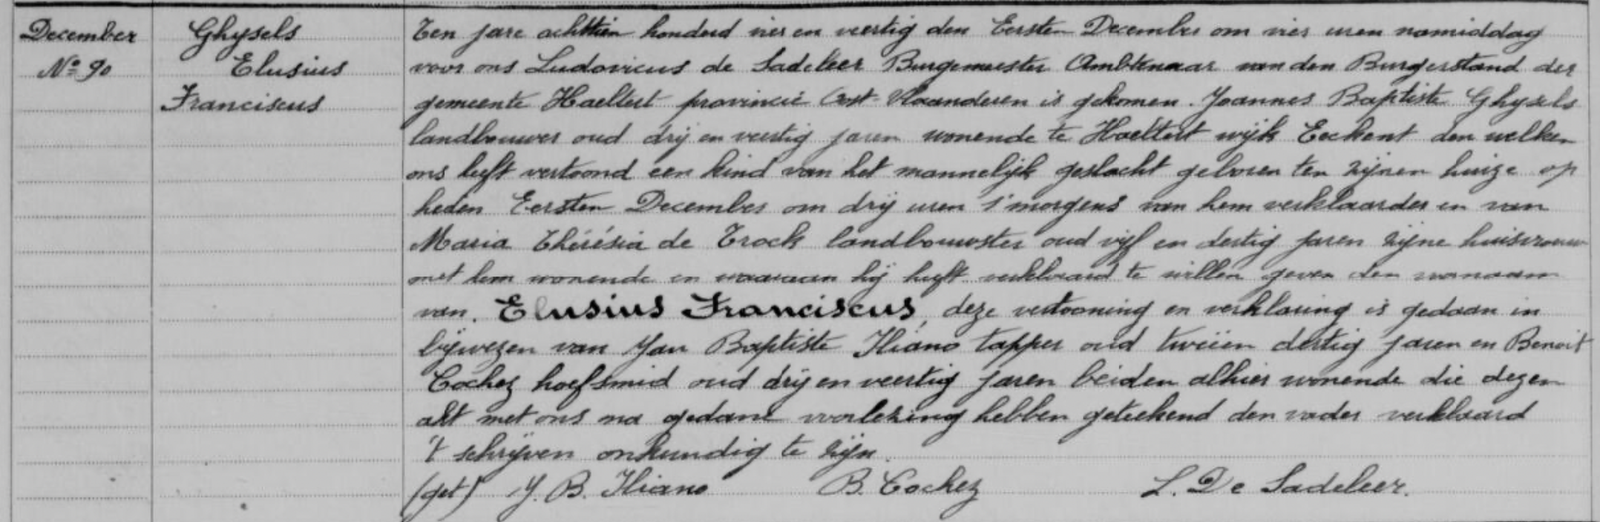 December
Nº 90
Ghysels
Elusius
Franciscus
Ten jare achttien honderd vier en veertig den Eersten December om vier uren namiddag
voor ons Ludovicus de Sadeleer Burgemeester Ambtenaar van den Burgerstand der
gemeente Haeltert provincie Oost-Vlaanderen is gekomen. Joannes Baptiste Ghysels
landbouwer oud drij en veertig jaren wonende te Haeltert wijk Eeckent den welken
ons heeft vertoond een kind van het mannelijk geslacht geboren ten zijnen huize op
heden Eersten December om drij uren s'morgens van hem verklaarder en van
Maria Thérésia de Trock landbouwster oud vijf en dertig jaren zijne huisvrouw
met hem wonende en waaraan hij heeft verklaard te willen geven den voornaam
van. Elusius Franciscus, deze vertooning en verklaring is gedaan in
bijwezen van Jan Baptiste Iliano tapper oud tweeen dertig jaren en Benoit
Cochez hoefsmid oud drij en veertig jaren beiden alhier wonende die dezen
akt met ons na gedane voorlezing hebben geteekend den vader verklaard
't schrijven onkundig te zijn.
(get) J. B. Iliano B. Cochez L. De Sadeleer.